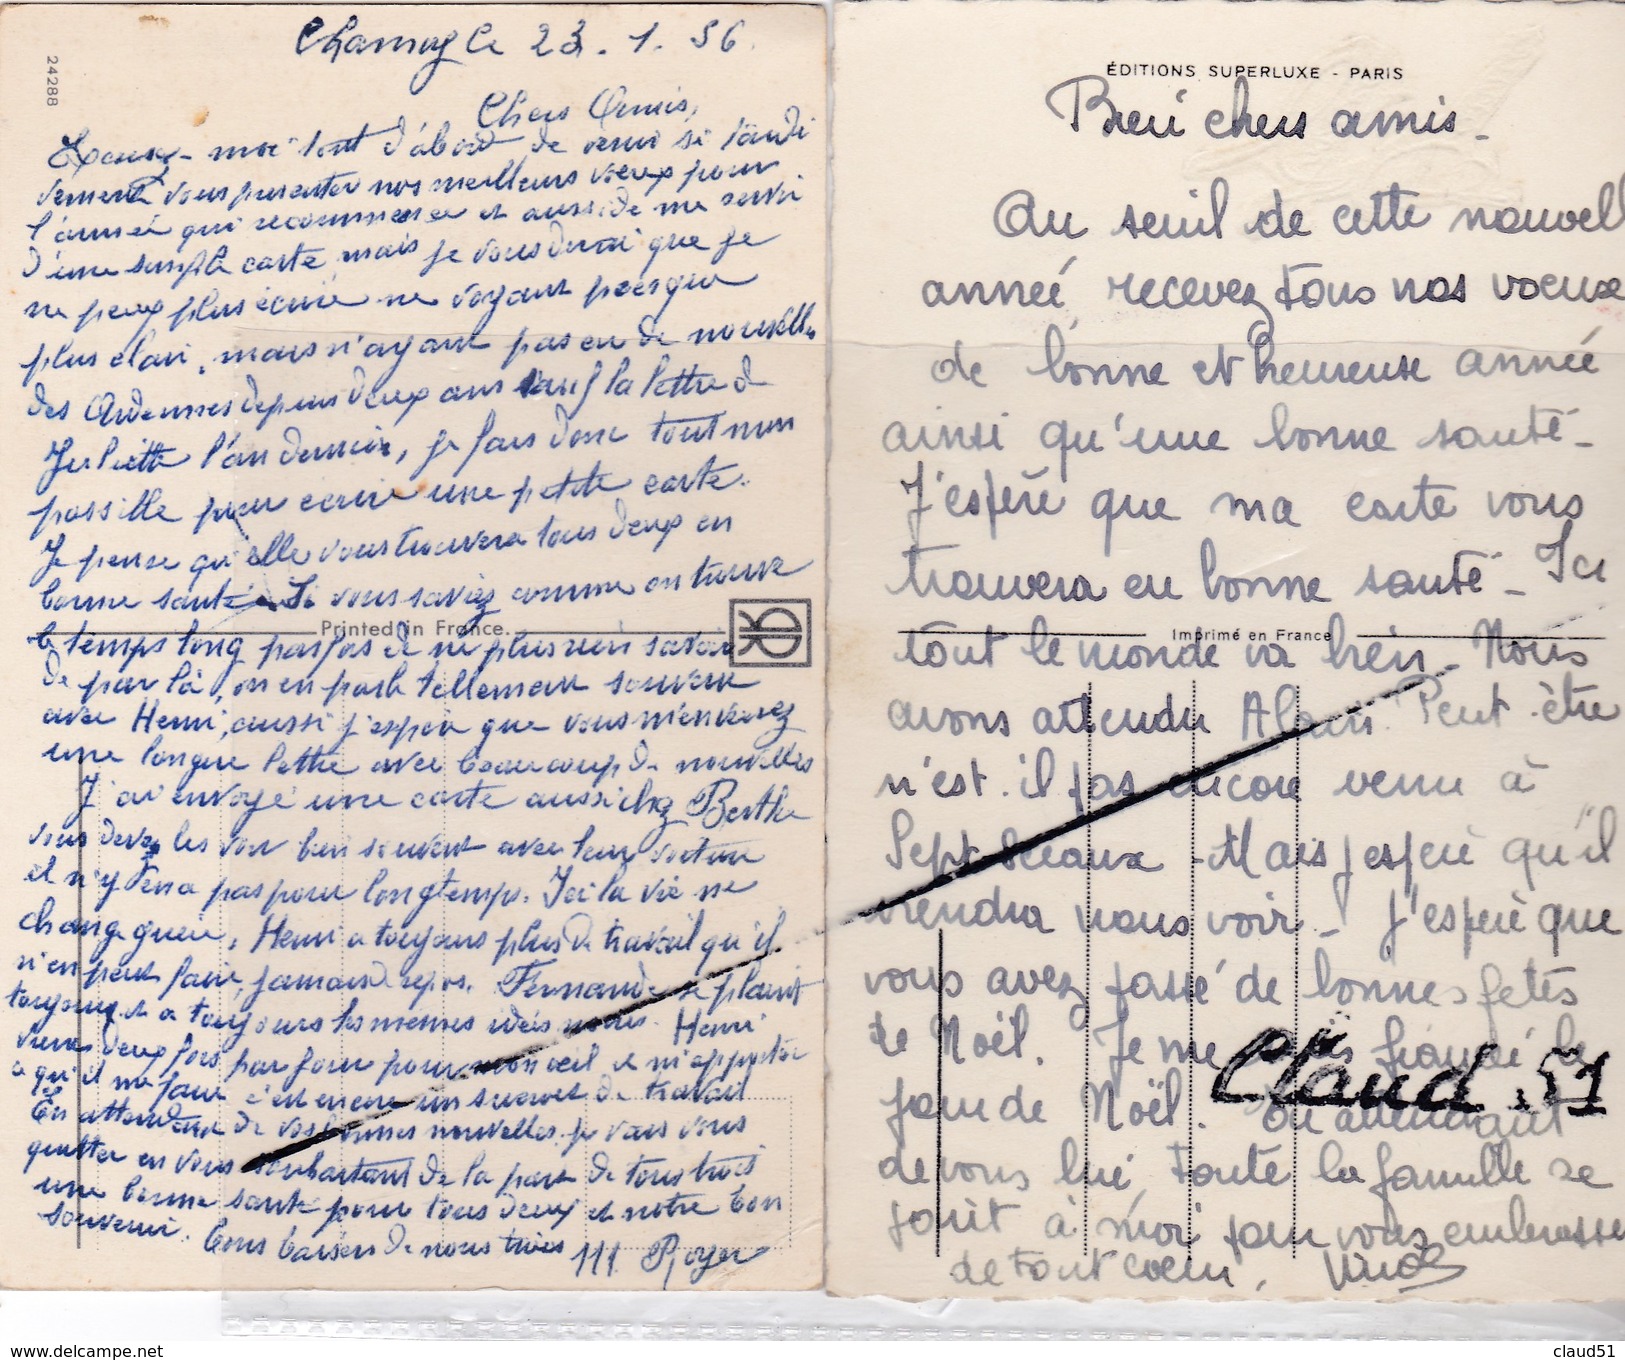 24288
Chamoy le 23. 1. 56
Chers Amis,
Excusez-moi tout d'abord de venir si tardi
vement vous presenter nos meilleurs voeux pour
l'année qui recommence et aussi de me servir
d'une simple carte, mais je vous dirai que je
ne peux plus écrire ne voyant presque
plus clair, mais n'ayant pas eu de nouvelles
des Ardennes depuis deux ans sauf la lettre de
Juliette l'an dernier, je fais donc tout mon
possible pour écrire une petite carte.
Je pense qu'elle vous trouvera tous deux en
bonne santé. Si vous saviez comme on trouve
le temps long parfois de ne plus rien savoir
Printed in France.
de par là, on en parle tellement souvent
avec Henri, aussi j'espère que vous m'enverrez
une longue lettre avec beaucoup de nouvelles
J'ai envoyé une carte aussi chez Berthe
vous devez les voir bien souvent avec leur voiture
il n'y en a pas pour longtemps. Ici la vie ne
change guère, Henri a toujours plus de travail qu'il
n'en peut faire, jamais de repos. Fernande se plaint
toujours et a toujours les memes idées noires. Henri
vient deux fois par jour pour mon oeil et m'apporter
ce qu'il me faut c'est encore un surcroit de travail
En attendant de vos bonnes nouvelles, je vais vous
quitter en vous souhaitant de la part de tous trois
une bonne santé pour tous deux et notre bon
souvenir. Bons baisers de nous trois M Royer
ÉDITIONS SUPERLUXE - PARIS
Bien chers amis -
Au seuil de cette nouvell
année, recevez tous nos voeux
de bonne et heureuse année
ainsi qu'une bonne santé -
J'espère que ma carte vous
trouvera en bonne santé - Ici
Imprimé en France
tout le monde va bien - Nous
avons attendu Alain. Peut être
n'est-il pas encore venu à
Sept-Sceaux - Mais j'espère qu'il
viendra nous voir - J'espère que
vous avez passé de bonnes fetes
de Noël. Je me suis fiancé le
jour de Noël. En attendant
Claud.51
de vous lire, toute la famille se
joint à moi pour vous embrasser
de tout coeur,
claud51